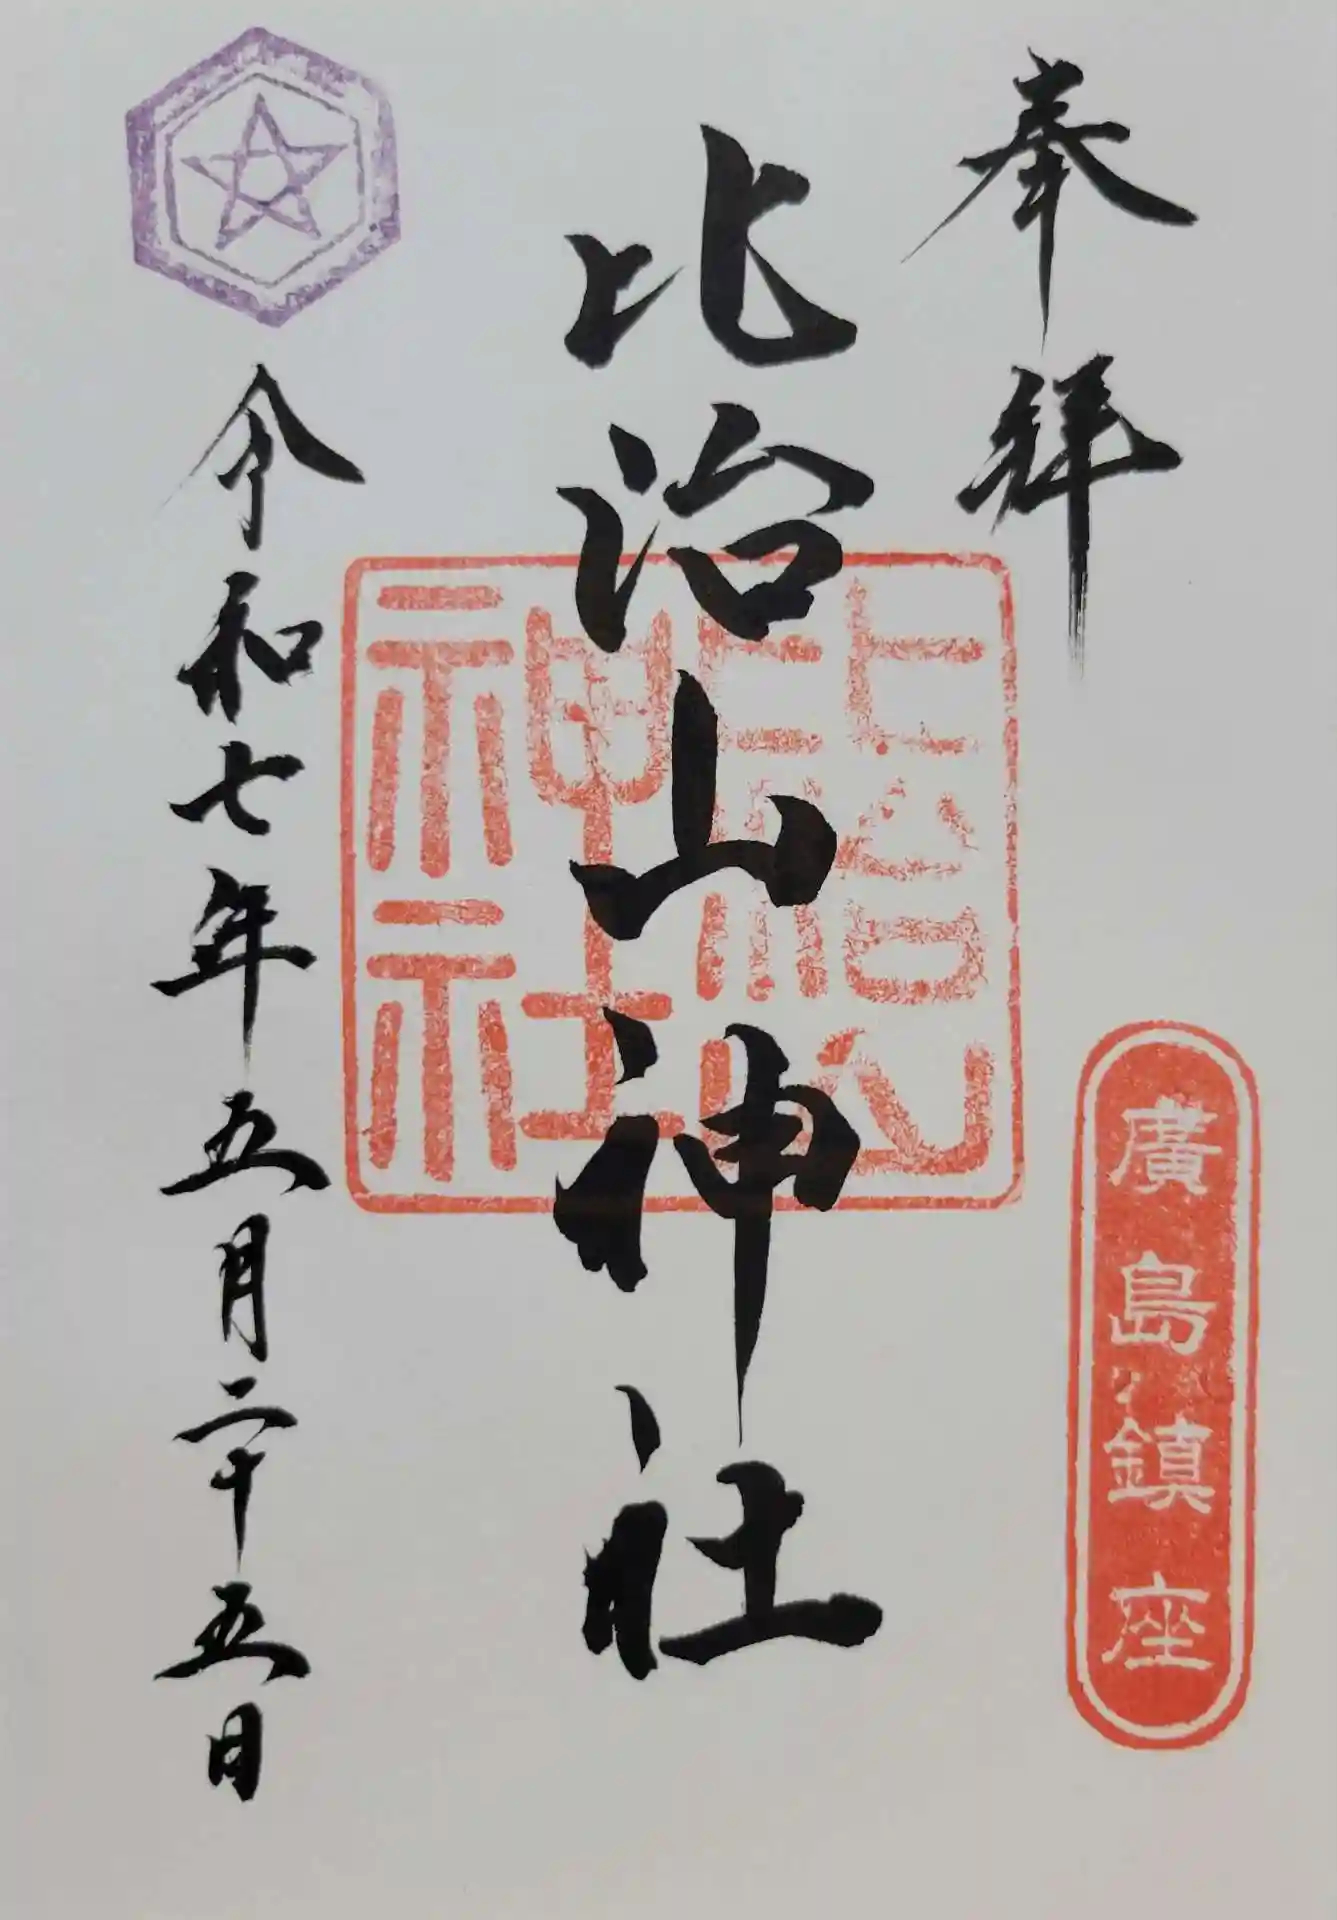 奉拝
廣島鎮座
比治山神社
令和七年五月二十五日